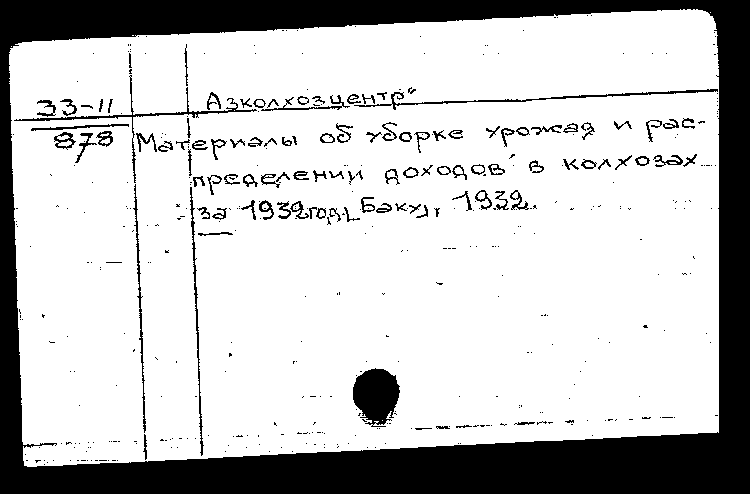 33-11
878
"Азколхозцентр"
Материалы об уборке урожая и рас-
пределении доходов в колхозах
за 1932 год. [Баку], 1932.